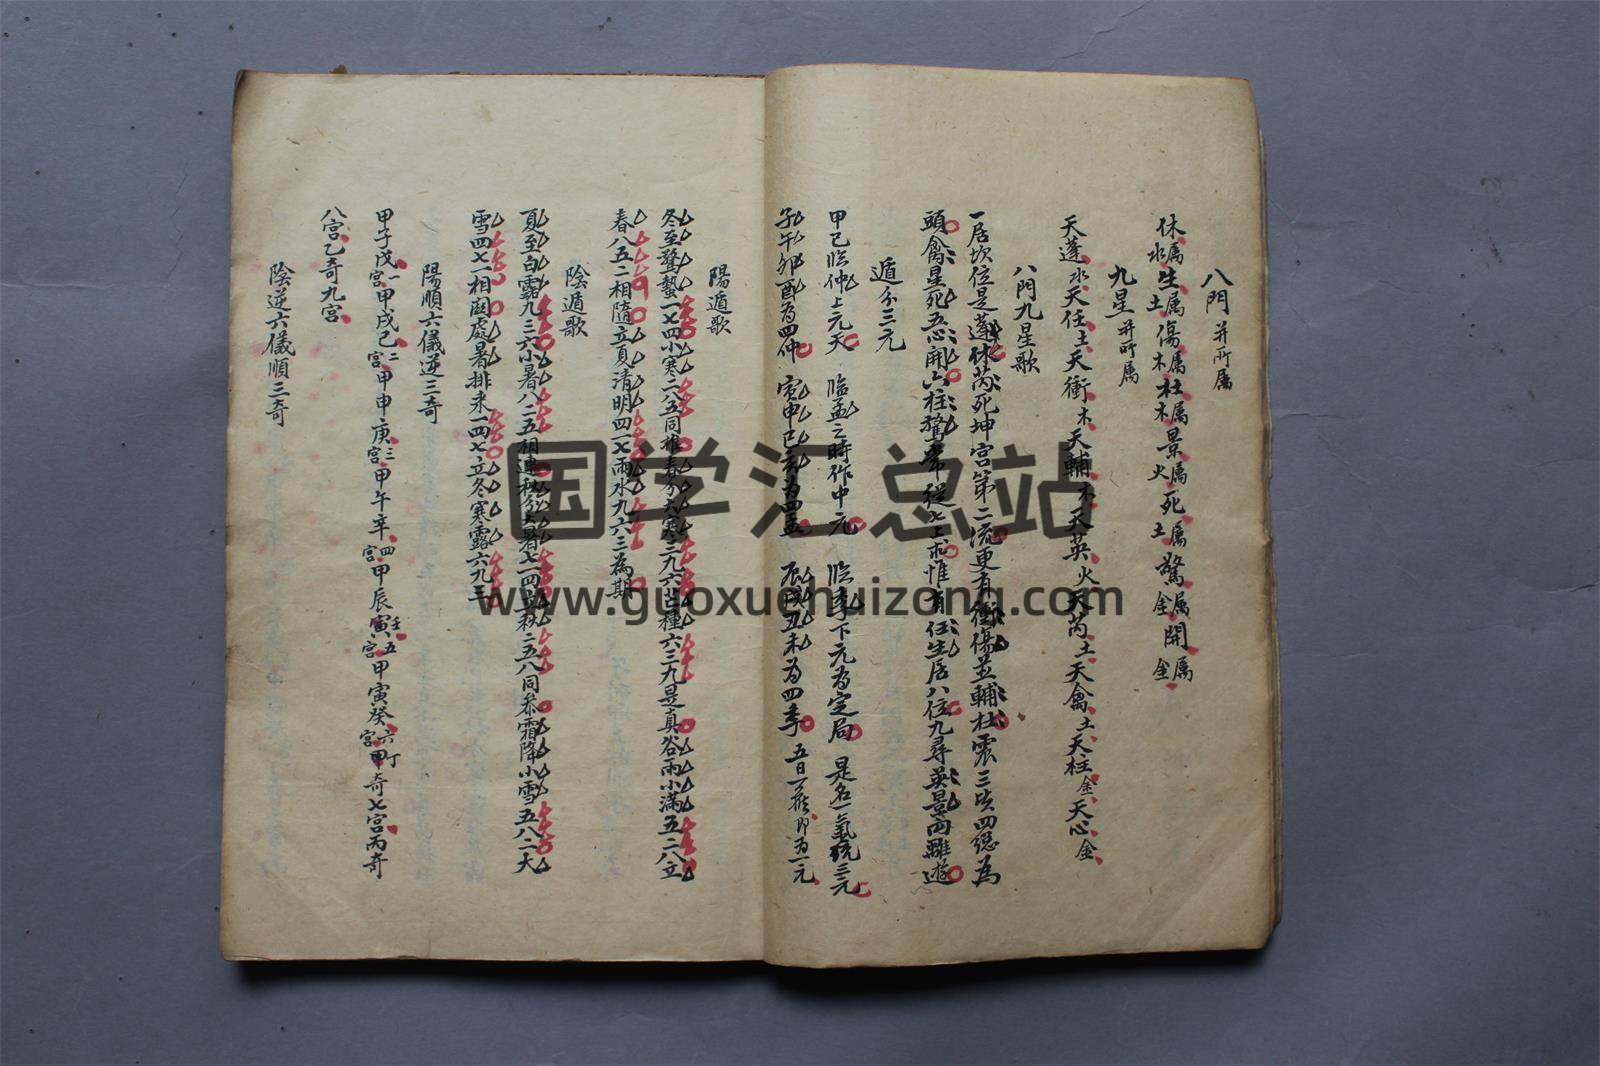 八門 並所属
休属水 生属土 傷属木 杜属木 景属火 死属土 驚属金 開属金
九星 並所属
天蓬水 天任土 天衝木 天輔木 天英火 天芮土 天禽土 天柱金 天心金
八門九星歌
一居坎位是蓬休芮死坤宮第二流更有衝傷並輔杜震三巽四総為
頭禽星死五心開六柱驚常從七上求惟有任生居八位九尋英景向離遊
遁分三元
甲己临仲上元天 临孟之時作中元 临季下元為定局 是名一氣統三元
子午卯酉為四仲 寅申巳亥為四孟 辰戌丑未為四季 五日一候即為一元
陽遁歌
冬至驚蟄一七四小寒二八五同推春分大寒三九六芒種六三九是真谷雨小滿五二八立
春八五二相隨立夏清明四一七雨水九六三為期
陰遁歌
夏至白露九三六小暑八二五相連秋分大暑七一四立秋二五八同參霜降小雪五八二大
雪四七一相関處暑排来一四七立冬寒露六九三
陽順六儀逆三奇
甲子戊一宮甲戌己二宮甲申庚三宮甲午辛四宮甲辰寅壬五宮甲寅癸六宮丁甲奇七宮丙奇
八宮乙奇九宮
陰逆六儀順三奇
国学汇总站
www.guoxuehuizong.com